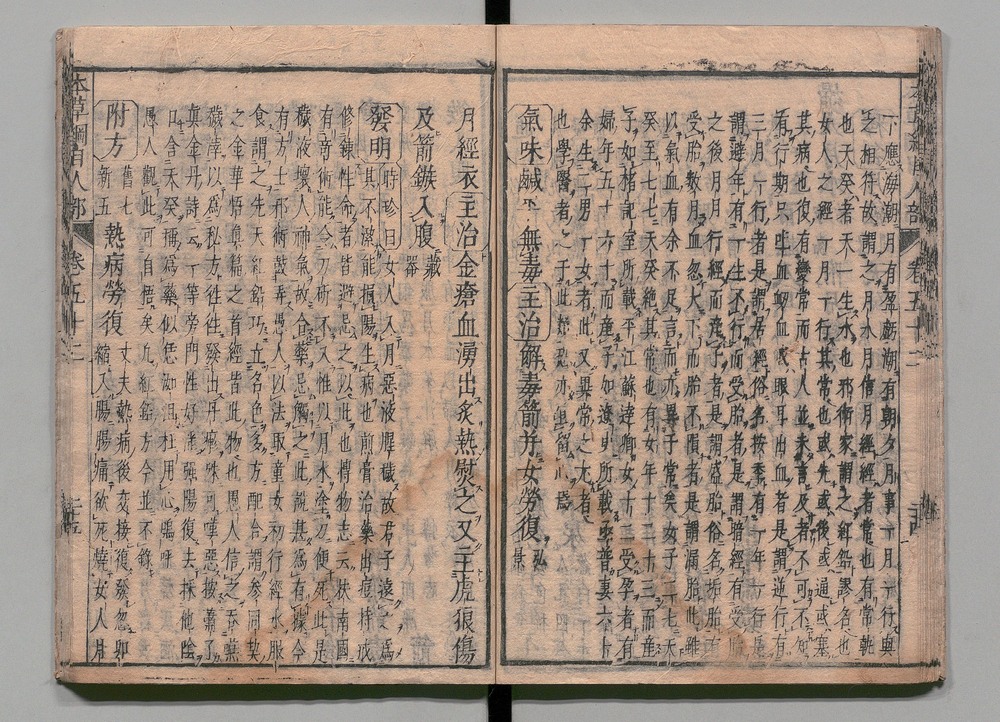 下應海潮月有盈虧潮有朝夕月事一月一行與
之相符故謂之月水月信月經經者常也有常軌
也天癸者天一生水也邪術家謂之紅鉛謬名也
女人之經一月一行其常也或先或後或通或塞
其病也復有變常而古人並未言及者不可不知
有行期只吐血衄血或眼耳出血者是謂逆行有
三月一行者是謂居經俗名按季有一年一行是
謂避年有一生不行而受胎者是謂暗經有受胎
之後月月行經而產子者是謂盛胎俗名垢胎有
受胎數月血忽大下而胎不隕者是謂漏胎此雖
以氣血有余不足言而亦異于常矣女子二七天
癸至七七天癸絕其常也有女年十二十三而產
子如褚記室所載平江蘇達卿女十二受孕者有
婦年五十六十而產子如遼史所載亟普妻六十
余生二男一女者此又異常之尤者
也學醫者之于此類恐亦宜留心焉
氣味鹹平無毒主治解毒箭并女勞復弘景
月經衣主治金瘡血湧出炙熱熨之又主虎狼傷
及箭鏃入腹藏器
發明時珍曰女人入月惡液腥穢故君子遠之為
其不潔能損陽生病也煎膏治藥出痘持戒
修鍊性命者皆避忌之以此也博物志云扶南國
有奇術能令刀斫不入惟以月水塗刀便死此是
穢液壞人神氣故合藥忌觸之此說甚為有據今
有方士邪術鼓弄愚人以法取童女初行經水服
食謂之先天紅鉛巧立名色多方配合謂參同契
之金華悟真篇之首經皆此物也愚人信之吞嚥
穢滓以為秘方往往發出丹疹殊可嘆惡按蕭了
真金丹詩云一等旁門性好婬強陽復去採他陰
口含天癸稱為藥似恁洳沮枉用心嗚呼
愚人觀此可自悟矣凡紅鉛方今並不錄
附方舊七新五熱病勞復丈夫熱病後交接復發忽卵縮入腸腸痛欲死燒女人月
本草綱目人部 卷五十二